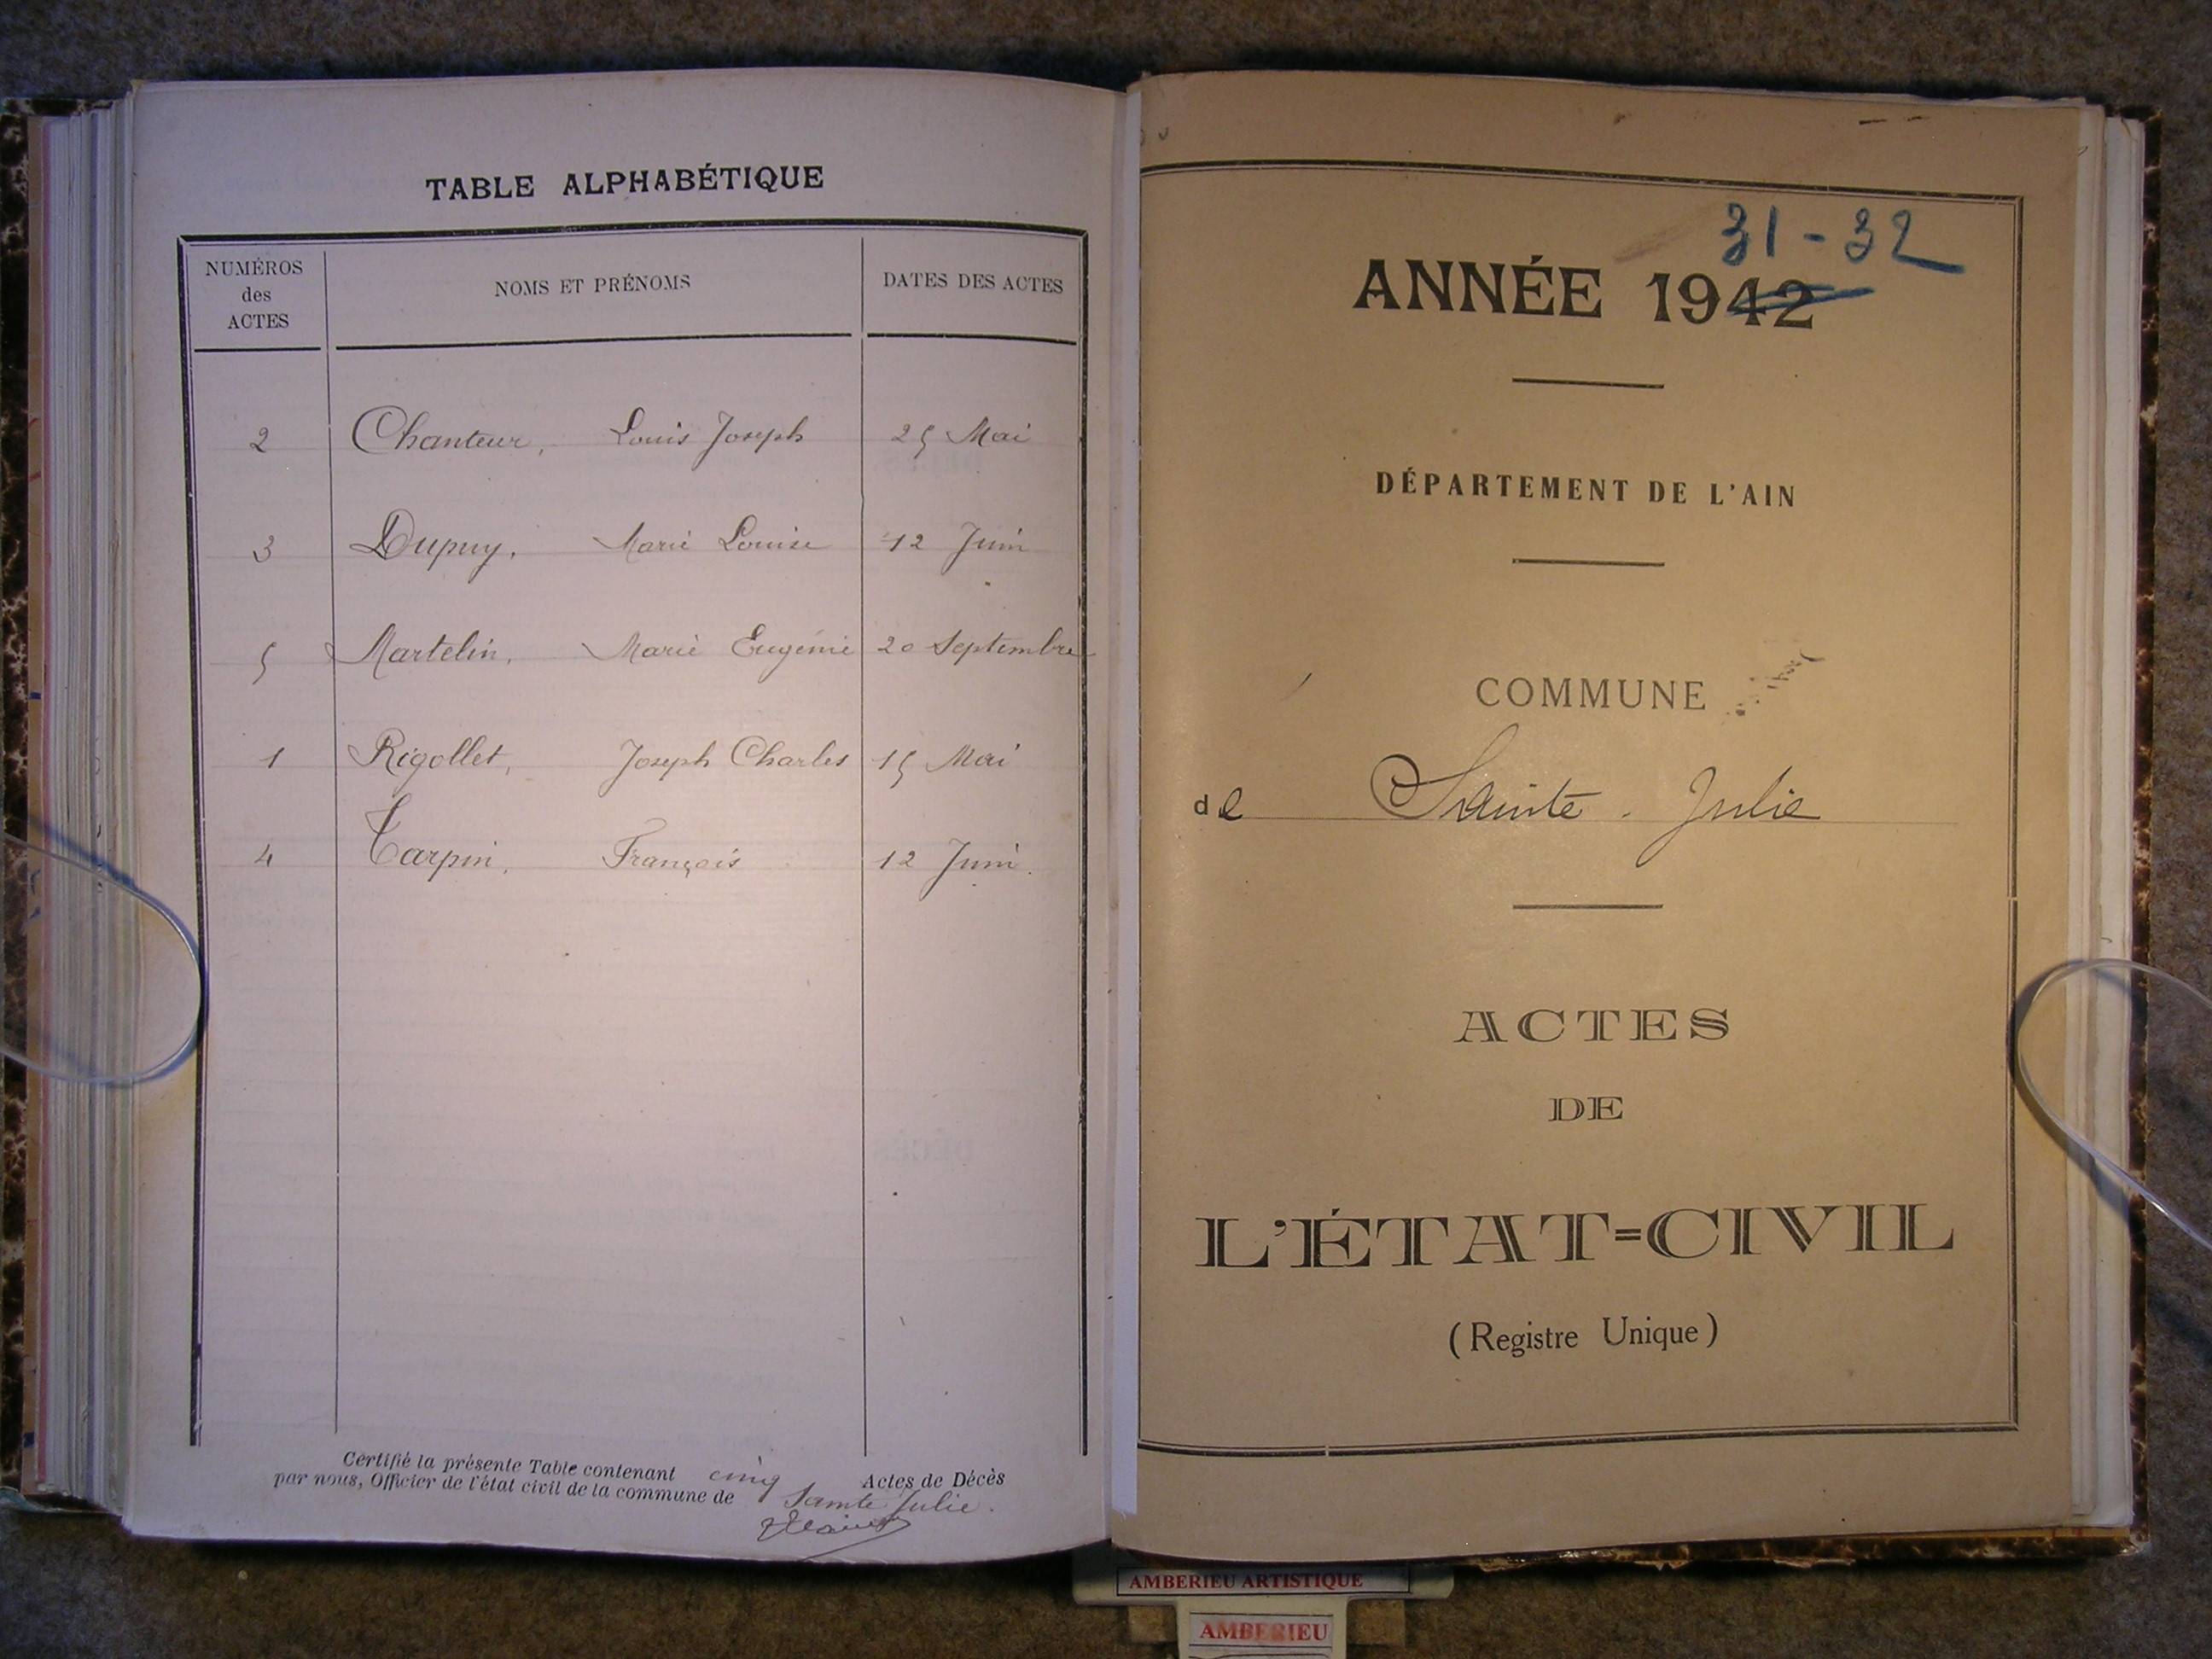 TABLE ALPHABÉTIQUE
NUMÉROS des ACTES NOMS ET PRÉNOMS DATES DES ACTES
2 Chanteur, Louis Joseph 25 Mai
3 Dupuy, Marie Louise 12 Juin
5 Martelin, Marie Eugénie 20 Septembre
1 Rigollet, Joseph Charles 15 Mai
4 Tarpin, François 12 Juin.
Certifié la présente Table contenant cinq Actes de Décès
par nous, Officier de l'état civil de la commune de Sainte Julie.
31-32
ANNÉE 1942
DÉPARTEMENT DE L'AIN
COMMUNE
de Sainte-Julie
ACTES
DE
L'ÉTAT=CIVIL
(Registre Unique)
AMBERIEU ARTISTIQUE
AMBERIEU